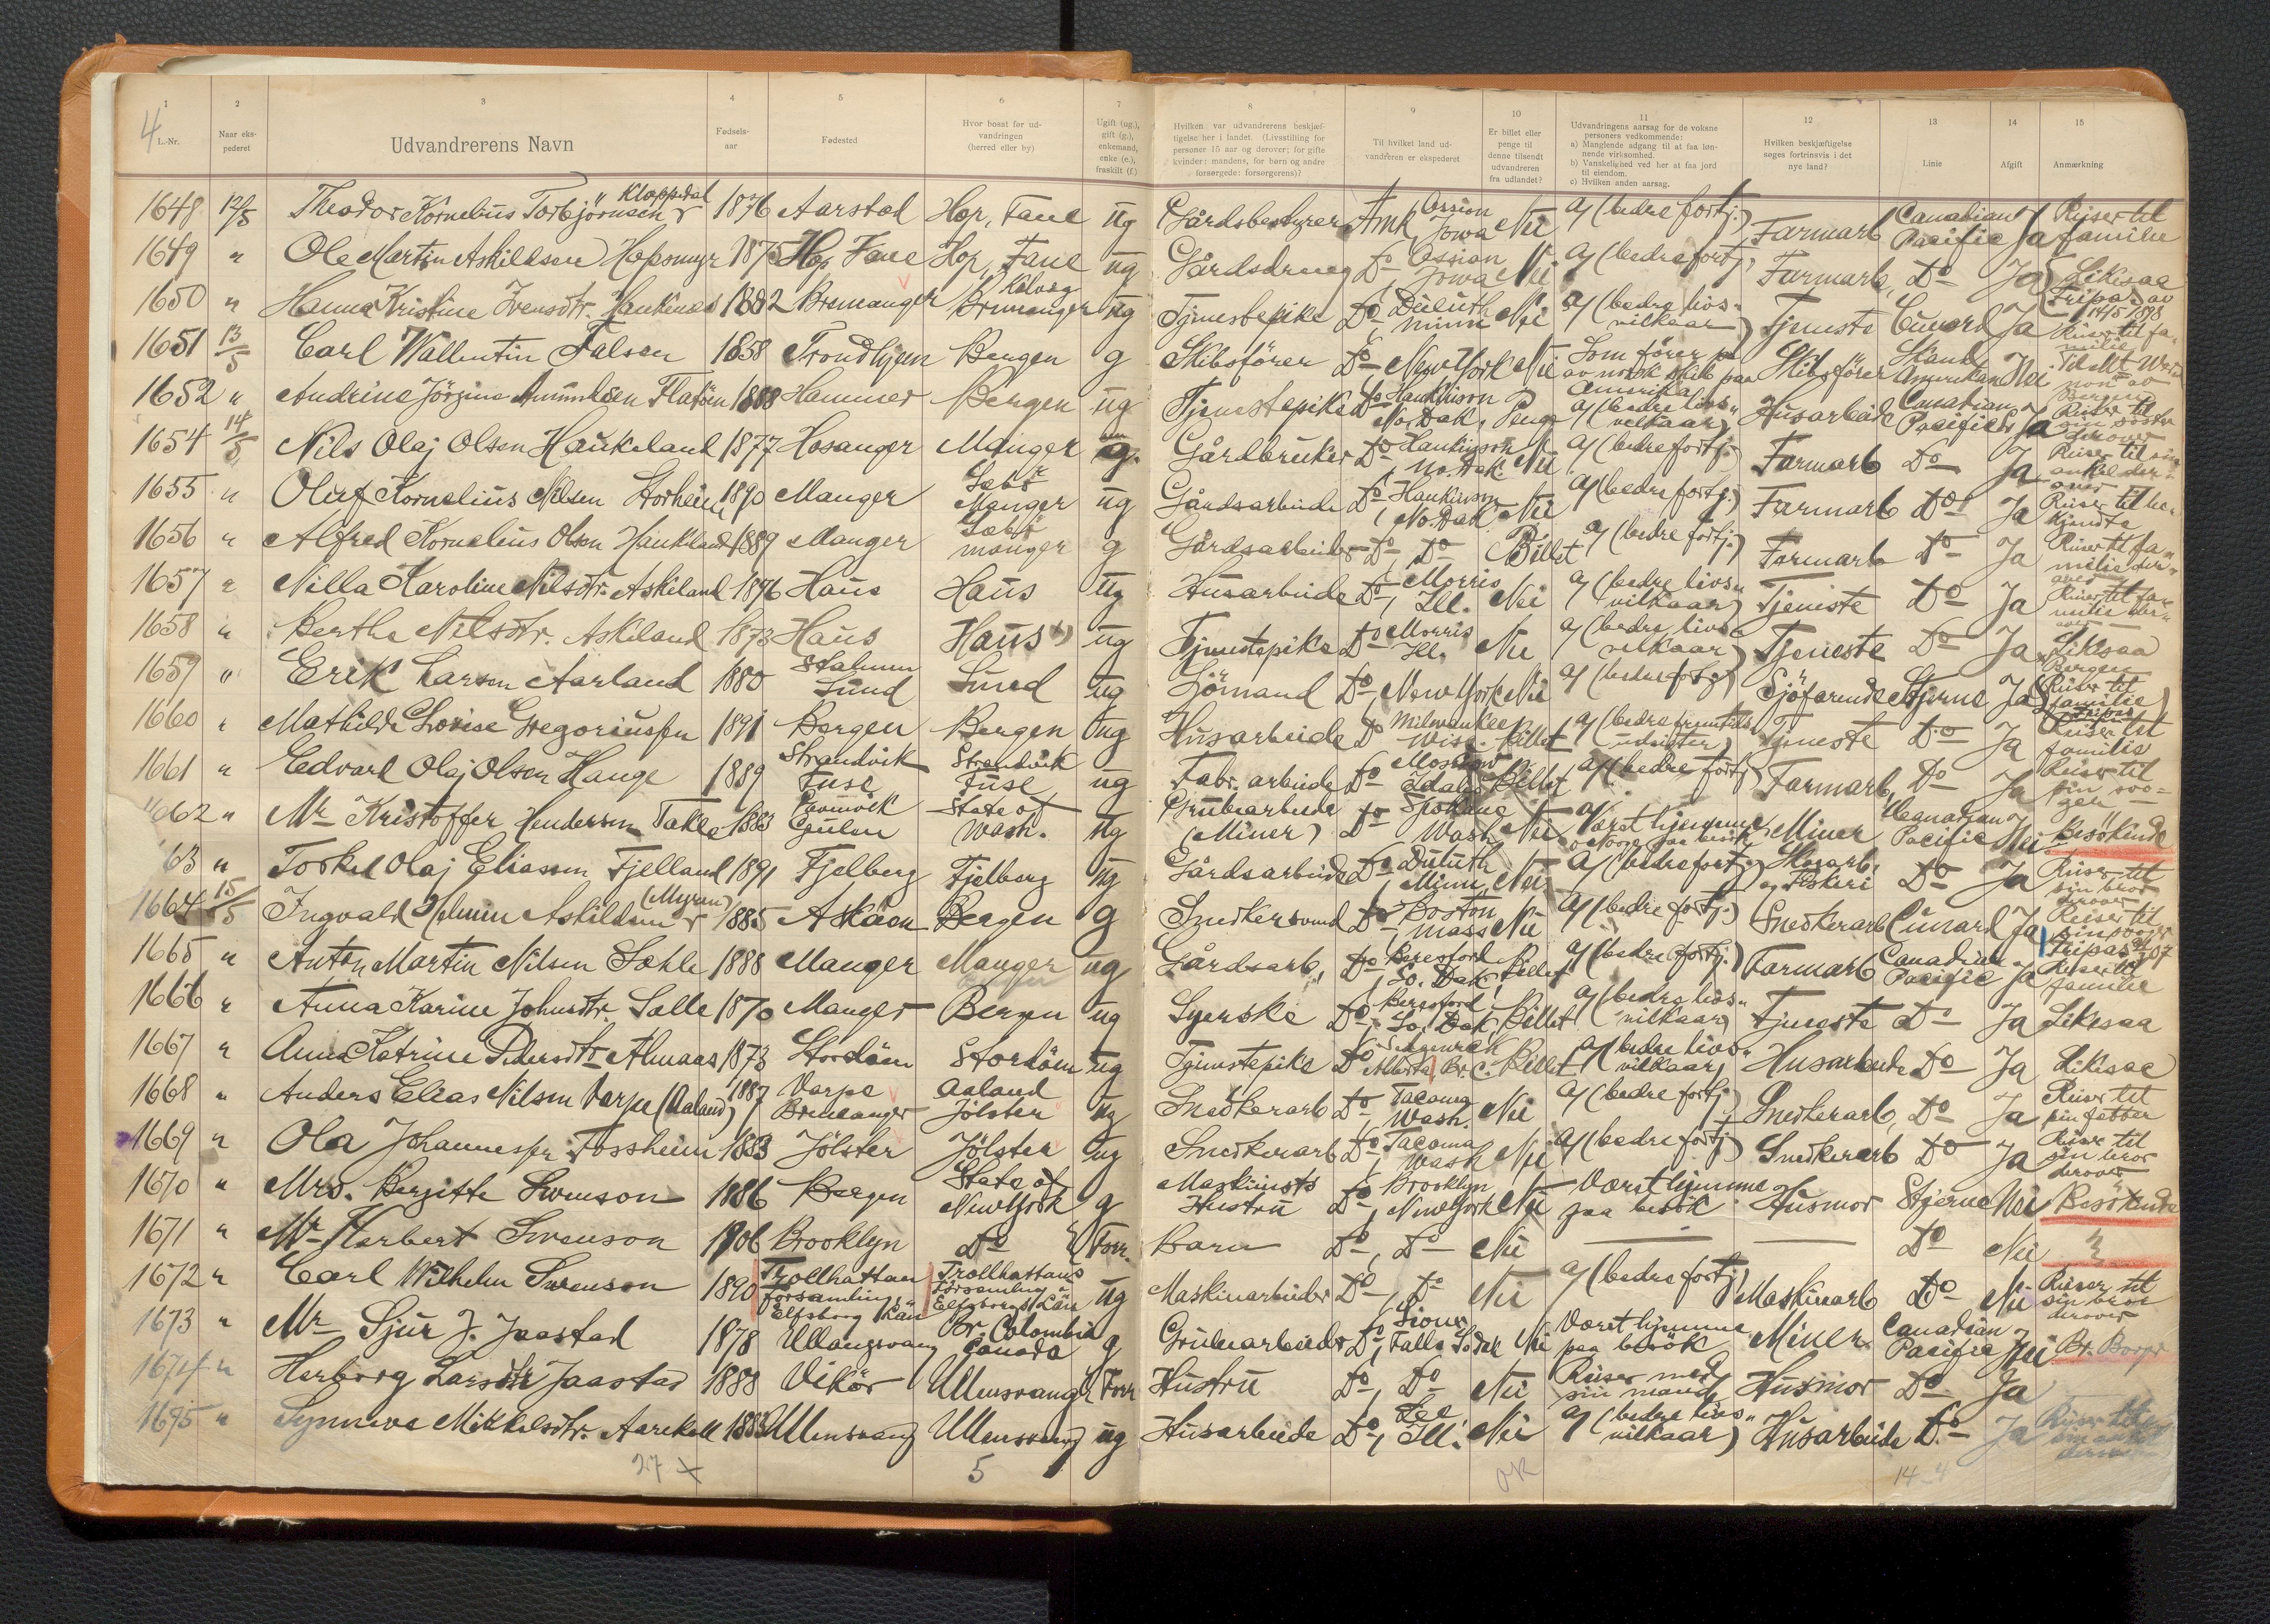 4
1 L.-Nr.
2 Naar ekspederet
3 Udvandrerens Navn
4 Fødselsaar
5 Fødested
6 Hvor bosat før udvandringen (herred eller by)
7 Ugift (ug.), gift (g.), enkemand, enke (e.), fraskilt (f.)
8 Hvilken var udvandrerens beskjæftigelse her i landet. (Livsstilling for personer 15 aar og derover; for gifte kvinder: mandens, for børn og andre forsørgede: forsørgerens)?
9 Til hvilket land udvandreren er ekspederet
10 Er billet eller penge til denne tilsendt udvandreren fra udlandet?
11 Udvandringens aarsag for de voksne personers vedkommende: a) Manglende adgang til at faa lønnende virksomhed. b) Vanskelighed ved her at faa jord til eiendom. c) Hvilken anden aarsag.
12 Hvilken beskjæftigelse søges fortrinsvis i det nye land?
13 Linie
14 Afgift
15 Anmerkning
1648 12/5 Theodor Kornelius Torbjörnsen Kloppedal 1876 Aarstad Hop, Fane ug Gårdsbestyrer Amk, Ossian Iowa Nei a) (bedre fortj.) Farmarb Canadian Pacific Ja Reiser til familie
1649 " Ole Martin Askildsen Hopsmyr 1875 Hop Fane Hop, Fane ug Gårdsdreng Do, Ossian Iowa Nei a) (bedre fortj.) Farmarb, Do Ja Likesaa
1650 " Hanna Kristine Iversdtr. Hankenæs 1882 Bremanger Kalvåg Bremanger ug Tjenestepike Do, Duluth Minn Nei a) (bedre livsvilkaar) Tjeneste Cunard Ja Reiser til familie
1651 13/5 Carl Wallentin Falsen 1858 Trondhjem Bergen g Skibsförer Do New York Nei Som förer paa av norsk skib paa Amerika Skibsförer Skand. Amerikan Nei
1652 " Andrine Jörgine Amundsen Flatöen 1888 Hammer Bergen ug Tjenestepike Do Hankinson No. Dak. Penge a) (bedre livsvilkaar) Husarbeide Canadian Pacific Ja Reiser til sin söster derover
1654 14/5 Nils Olaj Olsen Haukeland 1877 Hosanger Manger g. Gårdbruker Do Hankinson No. Dak. Nei a) (bedre fortj.) Farmarb Do Ja Reiser til sin onkel derover
1655 " Oluf Kornelius Nilsen Storheim 1890 Manger Sæbö Manger ug Gårdsarbeide Do, Hankinson No. Dak Nei a) (bedre fortj.) Farmarb Do Ja Reiser til bekjendte
1656 " Alfred Kornelius Olsen Haukeland 1889 Manger Sæbö Manger g Gårdsarbeider Do, Do Billet a) (bedre fortj.) Farmarb Do Ja Reiser til familie derover
1657 " Nilla Karoline Nilsdtr. Askeland 1896 Haus Haus ug Husarbeide Do, Morris Ill. Nei a) (bedre livsvilkaar) Tjeneste Do Ja Reiser til familie derover
1658 " Berthe Nilsdtr. Askeland 1873 Haus Haus ug Tjenestepike Do Morris Ill. Nei a) (bedre livsvilkaar) Tjeneste Do Ja Likesaa
1659 " Erik Larsen Aarland 1880 Stalum Sund Sund ug Sjömand Do, New York Nei a) (bedre fortj.) Sjöfarende Stjerne Ja Reiser til familie
1660 " Mathilde Lovise Gregoriussen 1891 Bergen Bergen ug Husarbeide Do Milwaukee Wisc. Billet a) (bedre fremtidsudsigter) Tjeneste Do Ja Reiser til familie
1661 " Edvard Olaj Olsen Hauge 1889 Strandvik Fuse Strandvik Fuse ug Fabr. arbeide Do Moscow Idaho Billet a) (bedre fortj.) Farmarb, Do Ja Reiser til sin svoger
1662 " Mr Kristoffer Hendersen Takle 1883 Gulen State of Wash. ug Grubearbeide (Miner) Do Spokane Wash. Nei Været hjemme i Norge paa besök Miner Canadian Pacific Nei Besökende
63 " Torkel Olaj Eliassen Fjelland 1891 Fjelberg Fjelberg ug Gårdsarbeide Do, Duluth Minn, Nei a) (bedre fortj.) og Fiskeri Do Ja Reiser til sin bror derover
1664 15/5 Ingvald Helmin Askildsen (Myran) 1885 Asköen Bergen g Snedkersvend Do Boston Mass Nei a) (bedre fortj.) Snedkerarb Cunard Ja Reiser til sin svoger
1665 " Anton Martin Nilsen Sæhle 1888 Manger Manger ug Gårdsarb, Do Beresford So. Dak. Billet a) (bedre fortj.) Farmarb Canadian Pacific Ja Reiser til familie
1666 " Anna Karine Johnsdtr. Sælle 1870 Manger Bergen ug Syerske Do, Beresford So. Dak. Billet a) (bedre livsvilkaar) Tjeneste Do Ja Likesaa
1667 " Anna Katrine Pedersdtr Almaas 1873 Stordöen Stordöen ug Tjenestepike Do Alberta Br. C. Billet a) (bedre livsvilkaar) Husarbeide Do Ja Likesaa
1668 " Anders Elias Nilsen Varpe (Aaland) 1887 Varpe Bremanger Aaland Jölster ug Snedkerarb Do Tacoma Wash. Nei a) (bedre fortj.) Snedkerarb, Do Ja Reiser til sin fætter
1669 " Ola Johannessen Fossheim 1883 Jölster Jölster ug Snedkerarb Do, Tacoma Wash Nei a) (bedre fortj.) Snedkerarb Do Ja Reiser til sin bror derover
1670 " Mrs. Bergitte Swenson 1886 Bergen State of New York g Maskinists Hustru Do, Brooklyn New York Nei Været hjemme paa besök Husmor Stjerne Nei Besökende
1671 " Mr Herbert Swenson 1906 Brooklyn Do Forr. Barn Do, Do Nei Do Nei "
1672 " Carl Wilhelm Swenson 1890 Trollhattan församling Elfsborg Län Trollhattans församling Elfsborgs Län ug Maskinarbeider Do, Do Nei a) (bedre fortj.) Maskinarb Do Nei Reiser til sin bror derover
1673 " Mr Sjur J. Jaastad 1878 Ullensvang Br. Colombia Canada g Grubearbeider Do, Sioux Falls So Dak Nei Været hjemme paa besök Miner Canadian Pacific Nei
1674 " Herborg Larsdtr Jaastad 1888 Vikör Ullensvang Forr Hustru Do, Do Nei Reiser med sin mand Husmor Do Ja
1695 " Synneva Mikkelsdtr. Aarekoll 1883 Ullensvang Ullensvang ug Husarbeide Do, Lee Ill. Nei a) (bedre livsvilkaar) Husarbeide Do Ja
27 5 OK 14 4